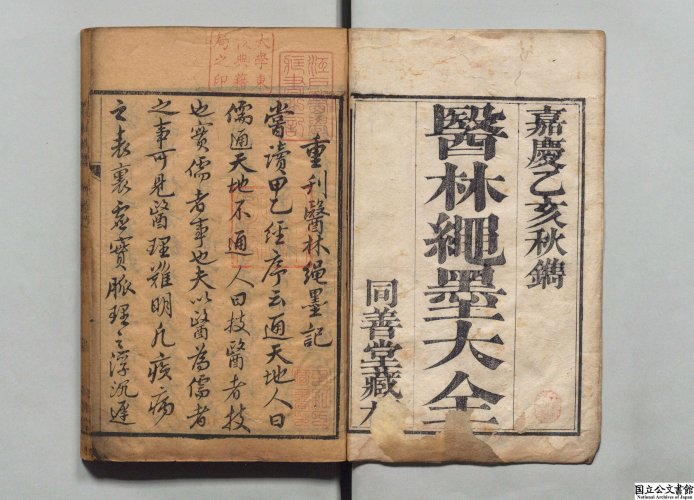 嘉慶乙亥秋鐫
醫林繩墨大全
同善堂藏
重刊醫林绳墨記
嘗讀甲乙經序云通天地人曰
儒通天地不通人曰技醫者技
也實儒者事也夫以醫為儒者
之事可見醫理難明凡疾病
之表裏虛實脈理之浮沉遲
大學東
校典籍
局之印
国立公文書館
National Archives of Japan